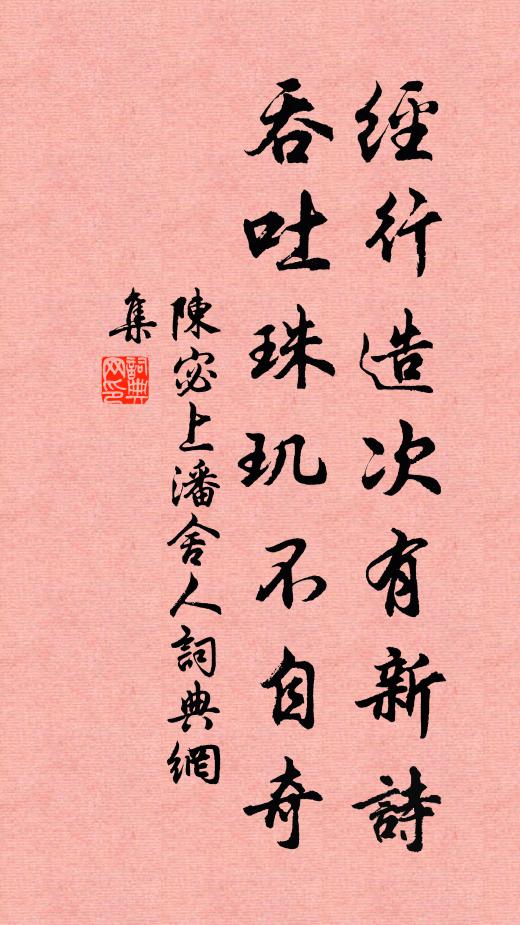 經行造次有新詩
吞吐珠玑不自奇
陳宓上潘舍人詞典網
集
詞典网印